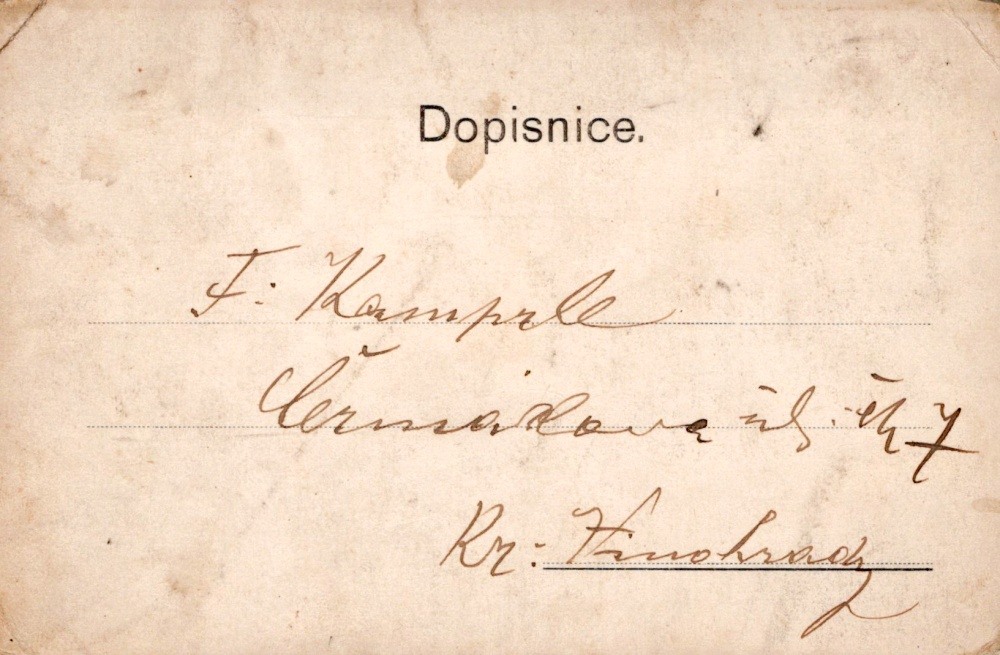 Dopisnice.
F. Kamprle
Čermákova ul. čís 7
Kr: Vinohrady